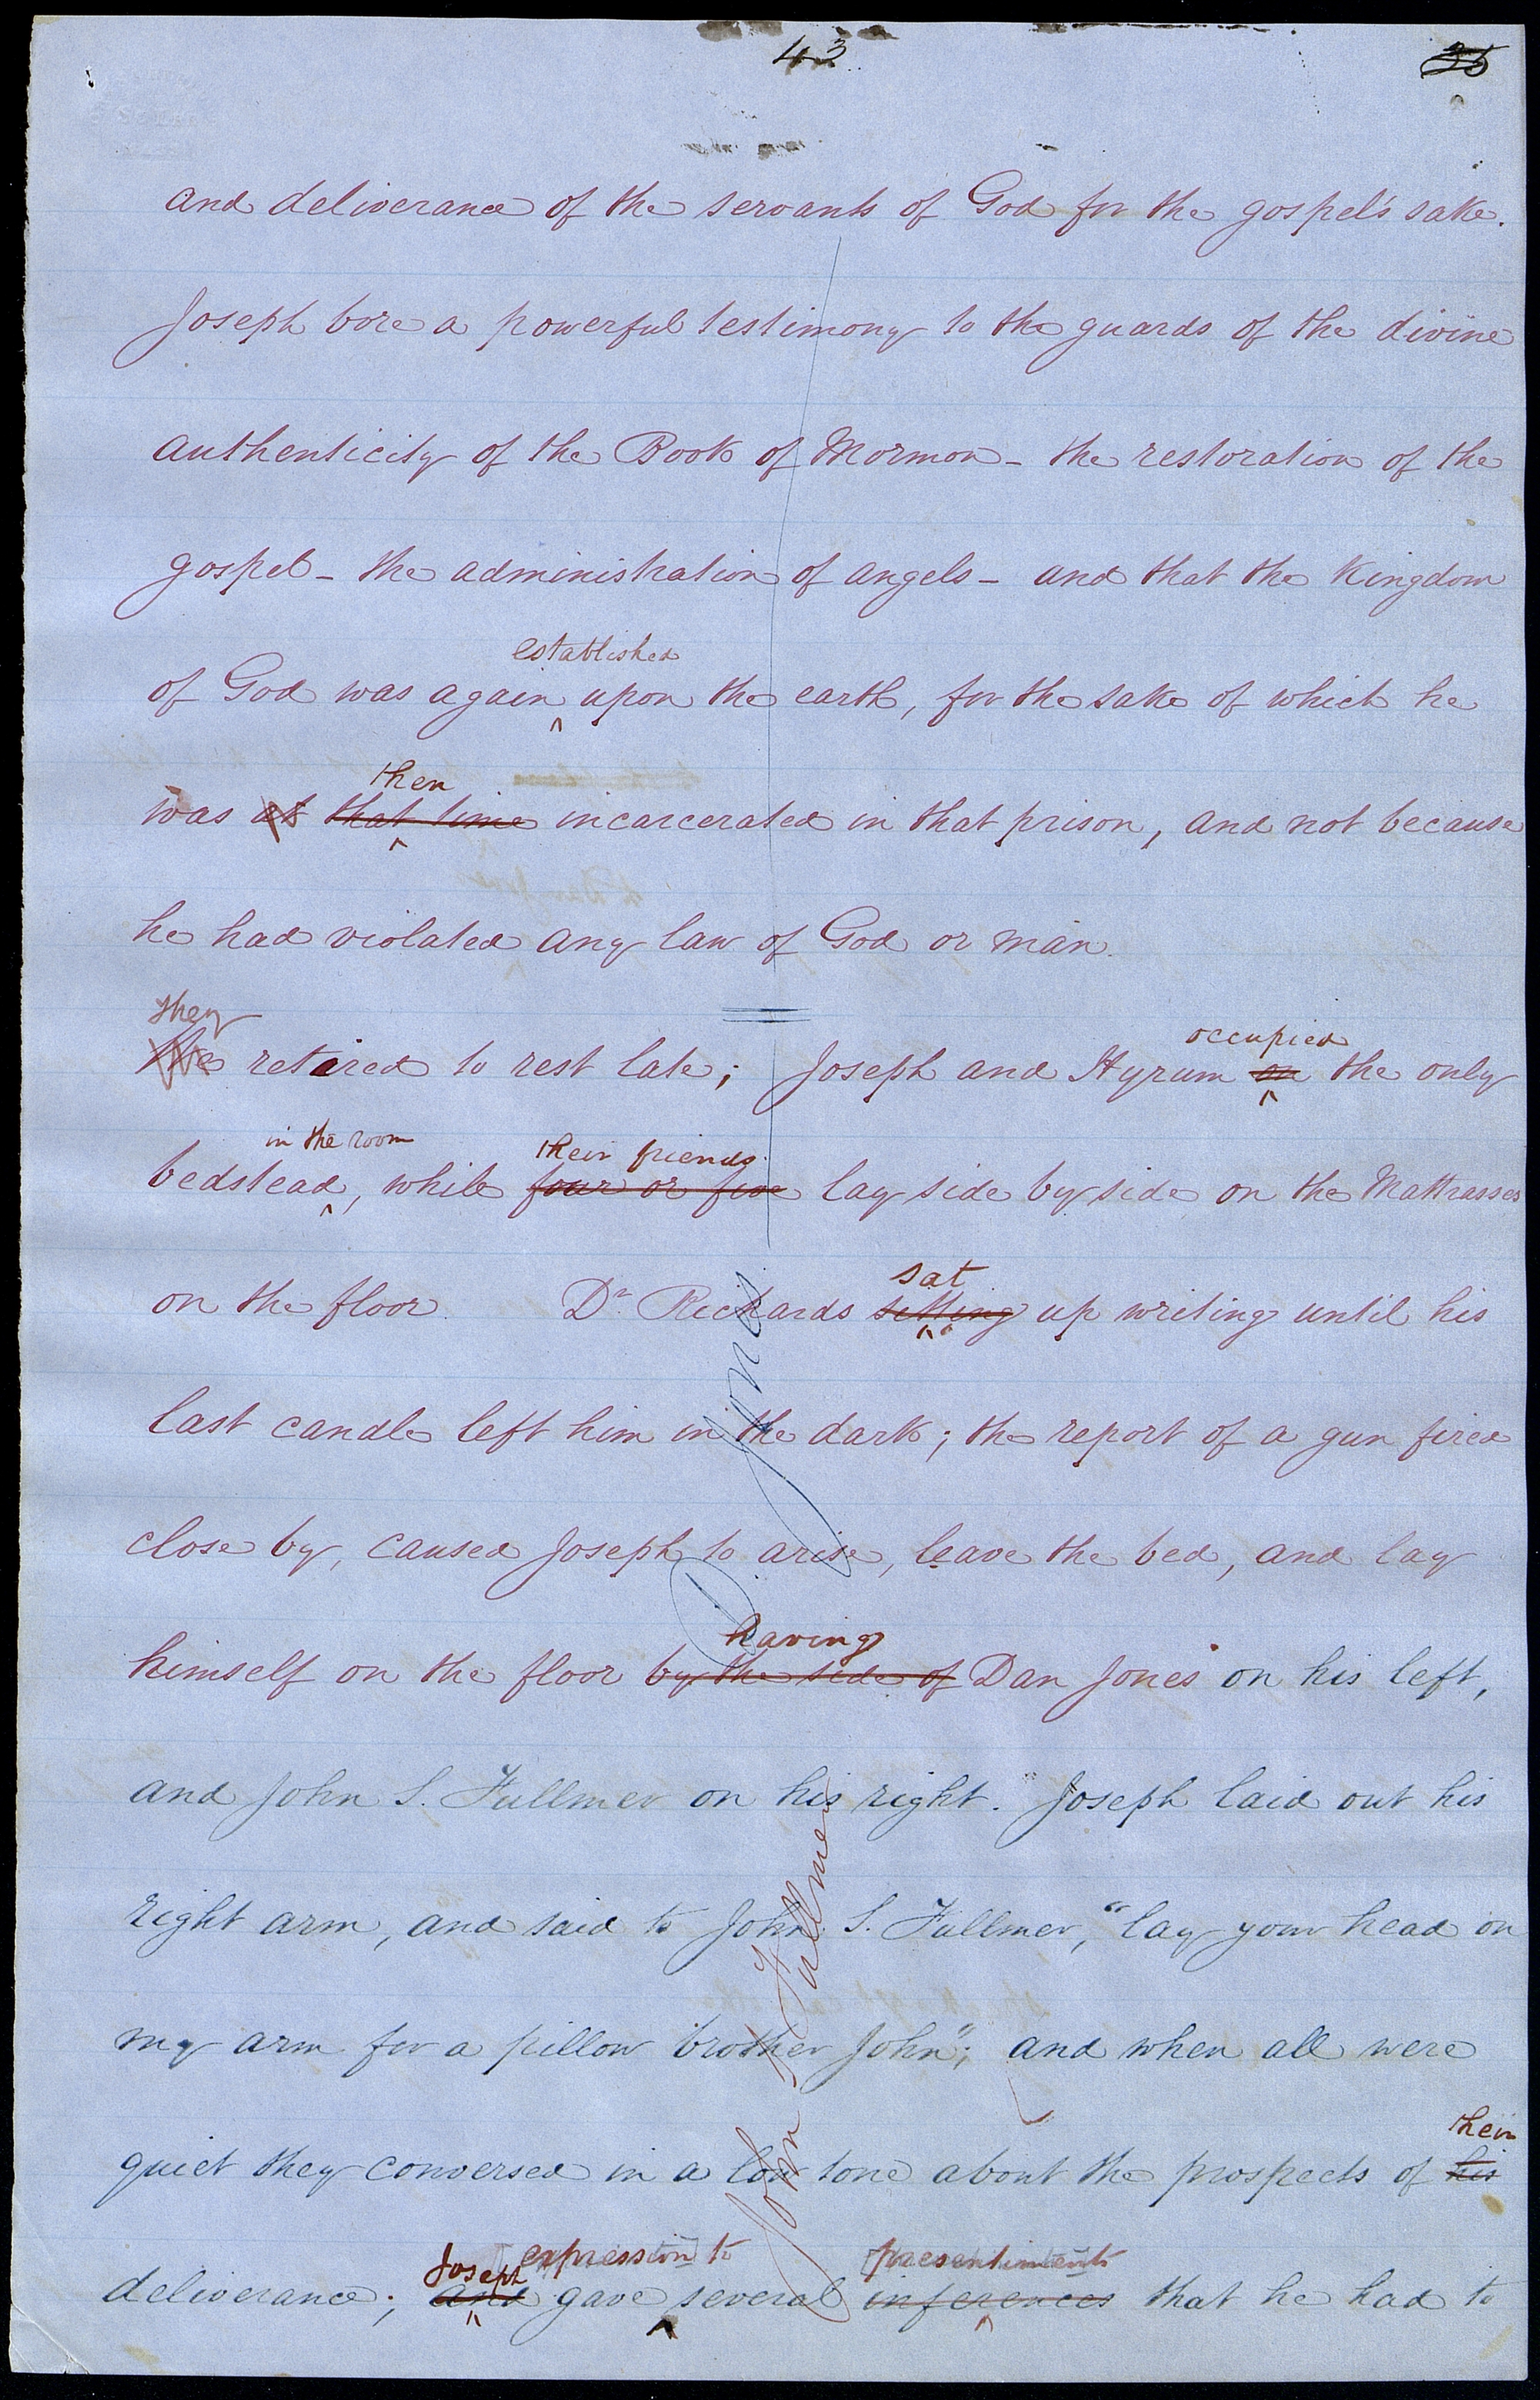 43
35
and deliverance of the servants of God for the gospel's sake.
Joseph bore a powerful testimony to the guards of the divine
authenticity of the Book of Mormon - the restoration of the
gospel - the administration of angels - and that the Kingdom
established
of God was again ‸ upon the earth, for the sake of which he
then
was at that time incarcerated in that prison, and not because
he had violated any law of God or man.
they
We retired to rest late; Joseph and Hyrum on the only
occupied
in the room
their friends
bedstead, while four or five lay side by side on the Mattrasses
sat
on the floor. Dr Richards sitting up writing until his
last candle left him in the dark; the report of a gun fired
close by, caused Joseph to arise, leave the bed, and lay
having
himself on the floor by the side of Dan Jones on his left,
and John S. Fullmer on his right. Joseph laid out his
right arm, and said to John S. Fullmer, "lay your head on
my arm for a pillow brother John"; and when all were
their
quiet they conversed in a low tone about the prospects of his
Joseph expression to presentiments
deliverance; and gave several inferences that he had to
D. Jones
John S Fullmer